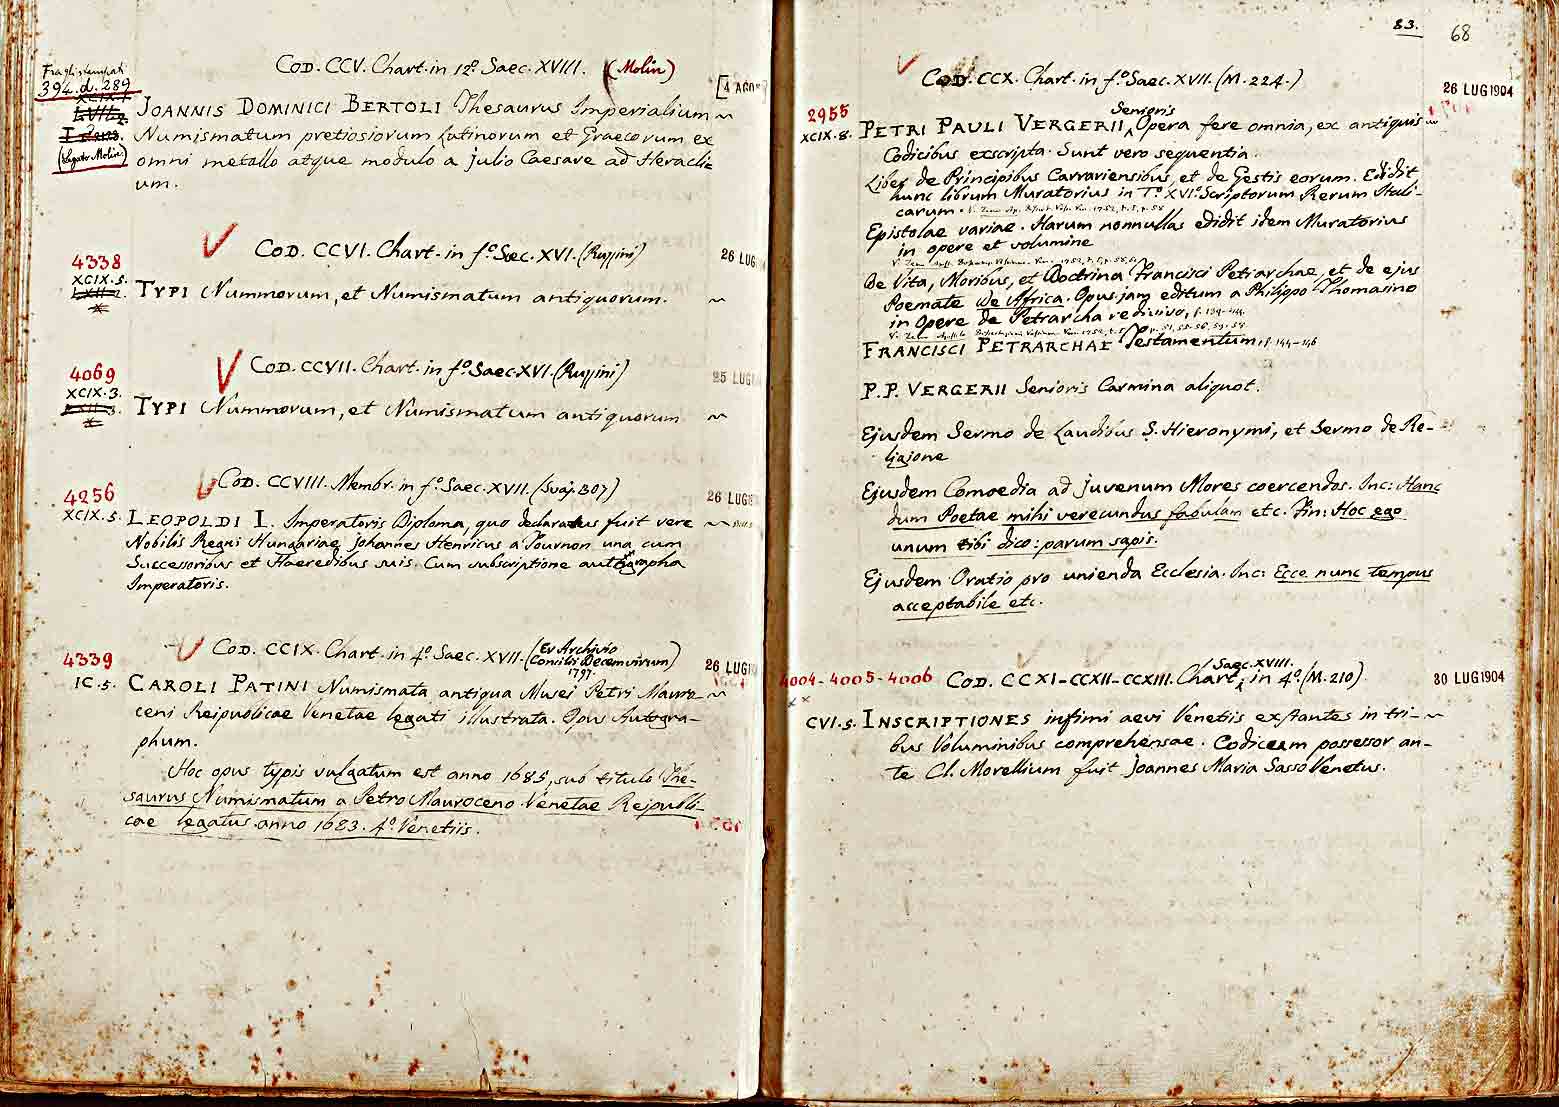 COD. CCV. Chart. in 12º. Saec. XVIII. (Molin)
Fra gli stampati
394. d. 289
[4 AGO
(Legato Molin)
JOANNIS DOMINICI BERTOLI Thesaurus Imperialium
Numismatum pretiosiorum Latinorum et Graecorum ex
omni metallo atque modulo a Julio Caesare ad Heracli-
um.
COD. CCVI. Chart. in fº. Saec. XVI. (Ruzzini)
26 LUG
4338
XCIX. 5.
TYPI Nummorum, et Numismatum antiquorum.
COD. CCVII. Chart. in fº. Saec. XVI. (Ruzzini)
25 LUG
4069
XCIX. 3.
TYPI Nummorum, et Numismatum antiquorum
COD. CCVIII. Membr. in fº. Saec. XVII. (Svaj. 1307)
26 LUG
4256
XCIX. 5.
LEOPOLDI I. Imperatoris Diploma, quo declaratus fuit vere
Nobilis Regni Hungariae Johannes Henricus a Tournon una cum
Successoribus et Haeredibus suis. Cum subscriptione autographa
Imperatoris.
COD. CCIX. Chart. in 4º. Saec. XVII. (Ex Archivio
Consilii Decemvirum)
1797.
26 LUG
4339
IC. 5.
CAROLI PATINI Numismata antiqua Musei Petri Mauro-
ceni Reipublicae Venetae legati illustrata. Opus Autogra-
phum.
Hoc opus typis vulgatum est anno 1685, sub titulo The-
saurus Numismatum a Petro Mauroceno Venetae Reipubli-
cae legatus anno 1683. 4º. Venetiis.
83.
68
COD. CCX. Chart. in fº. Saec. XVII. (M. 224.)
26 LUG 1904
2955
XCIX. 8.
Senioris
PETRI PAULI VERGERII, Opera fere omnia, ex antiquis
Codicibus exscripta. Sunt vero sequentia.
Liber de Principibus Carrariensibus, et de Gestis eorum. Edidit
hunc librum Muratorius in Tº. XVIº. Scriptorum Rerum Itali-
carum.
Epistolae variae. Harum nonnullas edidit idem Muratorius
in opere et volumine
De Vita, Moribus, et Doctrina Francisci Petrarchae, et de ejus
Poemate de Africa. Opus jam editum a Philippo Thomasino
in Opere de Petrarcha redivivo, f. 134-144.
FRANCISCI PETRARCHAE Testamentum, f. 144-146
P. P. VERGERII Senioris Carmina aliquot.
Ejusdem Sermo de Laudibus S. Hieronymi, et Sermo de Re-
ligione
Ejusdem Comoedia ad juvenum Mores coercendos. Inc: Hanc
dum Poetae mihi verecundus fabulam etc. Fin: Hoc ego
unum tibi dico: parum sapis.
Ejusdem Oratio pro unienda Ecclesia. Inc: Ecce nunc tempus
acceptabile etc.
Saec. XVIII.
4004-4005-4006 COD. CCXI-CCXII-CCXIII. Chart. in 4º. (M. 210)
30 LUG 1904
CVI. 5.
INSCRIPTIONES infimi aevi Venetiis exstantes in tri-
bus Voluminibus comprehensae. Codicum possessor an-
te Cl. Morellium fuit Joannes Maria Sasso Venetus.